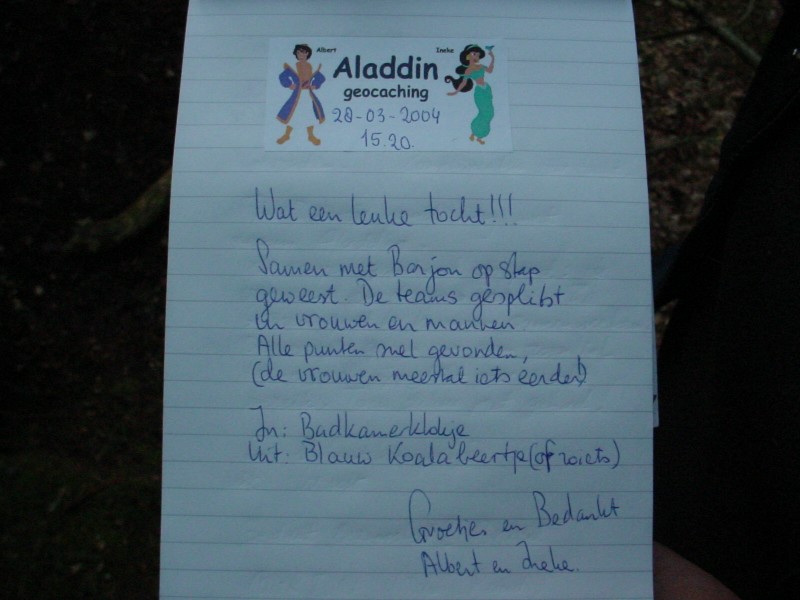 Albert Ineke
Aladdin
geocaching
28-03-2004
15.20.
Wat een leuke tocht!!!
Samen met Barjon op stap
geweest. De teams gesplitst
in vrouwen en mannen
Alle punten snel gevonden,
(de vrouwen meestal iets eerder!)
In: Badkamerklokje
Uit: Blauw Koalabeertje (of zoiets)
Groetjes en Bedankt
Albert en Ineke.